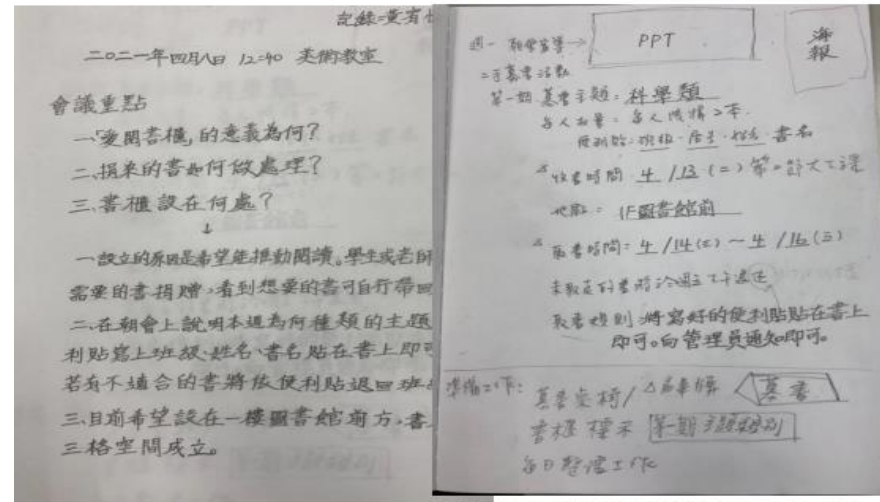 記錄:黃有
二〇二一年四月八日 12:40 美術教室
會議重點
一、「愛閱書櫃」的意義為何?
二、捐來的書如何做處理?
三、書櫃設在何處?
↓
一、設立的原因是希望能推動閱讀。學生或老師
需要的書捐贈,看到想要的書可自行帶回
二、在朝會上說明本週為何種類的主題
利貼寫上班級、姓名、書名貼在書上即可
若有不適合的書將依便利貼退回班
三、目前希望設在一樓圖書館前方,書
三格空間成立。
週一 PPT 海報
二手募書活動
第一期 募書主題:科學類
每人數量:每人限捐2本.
便利貼:班級、座號、姓名、書名
△ 收書時間:4/13(二)第一節大下課
地點:1F圖書館前
△ 取書時間:4/14(三)~4/16(五)
未取走的書將於週五下午退還
取書規則:將寫好的便利貼貼在書上
即可。向管理員通知即可。
準備工作:募書桌椅/△桌牌 募書
書櫃標示 第一期主題類別
每日整理工作